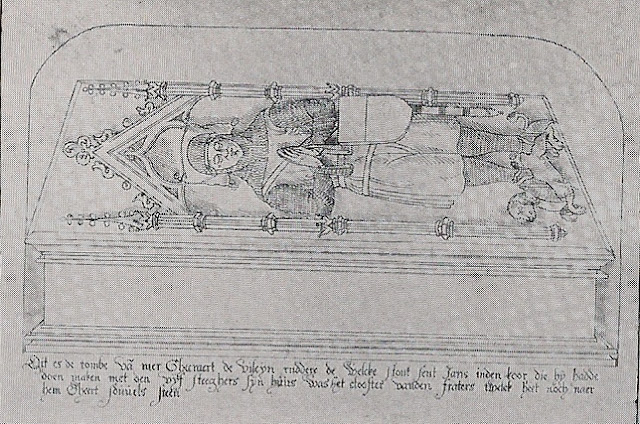 Dit es de tombe vā mer Gheraert de vileyn ruddere de welcke stont sent Jans inden koor die hy hadde
doen maken met den vyf steeghers syn huus was het clooster vanden fraters twelck heet noch naer
hem Gheert sduuels steen